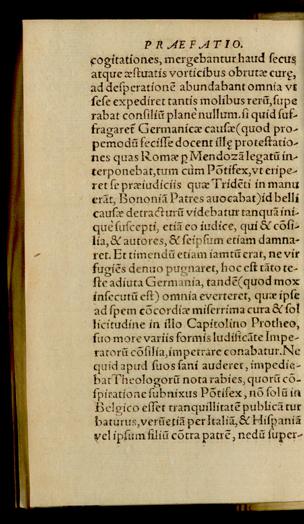 PRAEFATIO.
cogitationes, mergebantur haud secus
atque æstuatis vorticibus obrutæ curę,
ad desperationē abundabant omnia vt
sese expediret tantis molibus rerū, supe
rabat consiliū planè nullum. si quid suf-
fragaret̃ Germanicæ causæ (quod pro-
pemodū fecisse docent illę protestatio-
nes quas Romæ ꝑ Mendozā legatū in-
terponebat, tum cùm Põtifex, vt eripe-
ret se præiudiciis quæ Tridēti in manu
erāt, Bononiā Patres auocabat) id belli
causæ detracturū videbatur tanquā ini-
què suscepti, etiā eo iudice, qui & cõsi-
lia, & autores, & seipsum etiam damna-
ret. Et timendū etiam iamtū erat, ne vir
fugiēs denuo pugnaret, hoc est tāto te-
ste adiuta Germania, tandē (quod mox
insecutū est) omnia euerteret, quæ ipse
ad spem cõcordiæ miserrima cura & sol
licitudine in illo Capitolino Protheo,
suo more variis formis ludificāte Impe-
ratorū cõsilia, impetrare conabatur. Ne
quid apud suos sani auderet, impedie-
bat Theologorū nota rabies, quorū cõ-
spiratione subnixus Põtifex, nõ solū in
Belgico esset tranquillitatē publicā tur
baturus, verū etiā per Italiā, & Hispaniā
vel ipsum filiū cõtra patrē, nedū super-